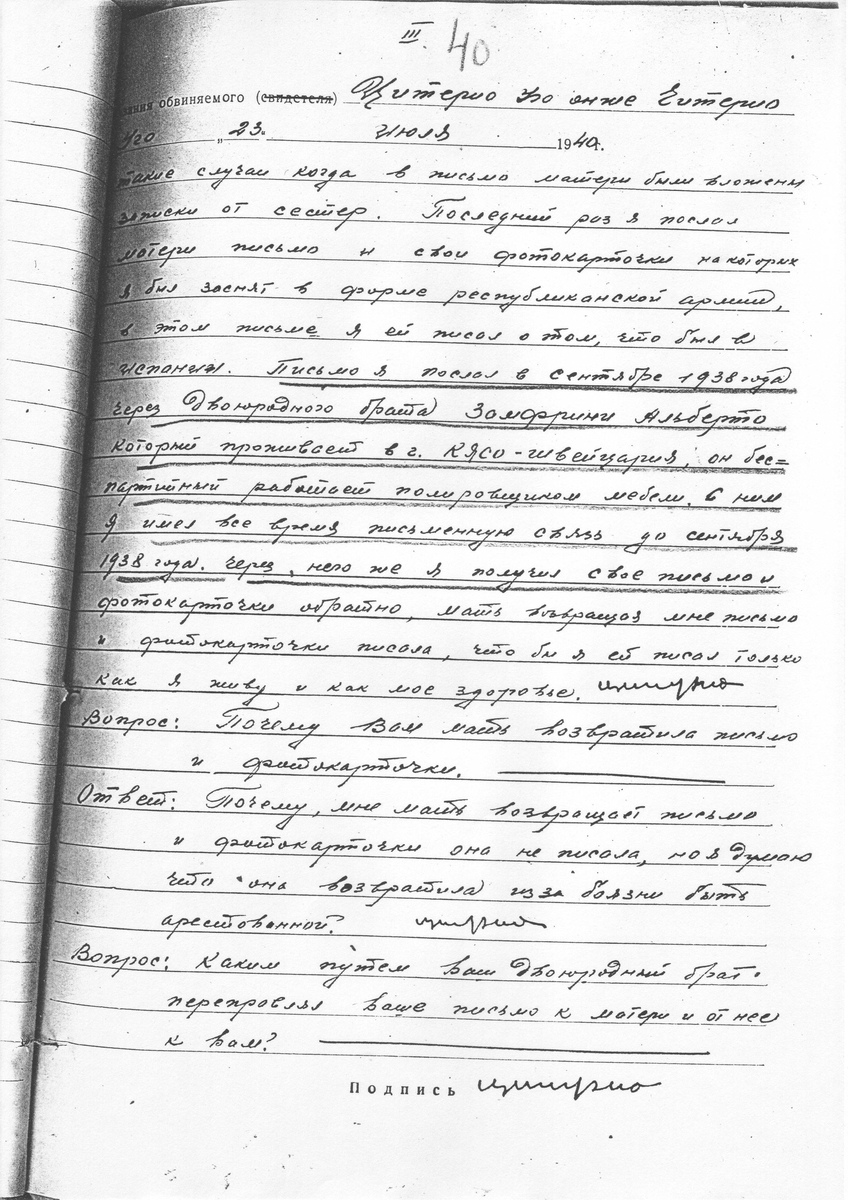 III.
40
зания обвиняемого (свидетеля) Цитерио он же Читерио
„23" июля 1940г.
такие случаи когда в письмо матери были вложены
записки от сестер. Последний раз я послал
матери письмо и свои фотокарточки на которых
я был заснят в форме республиканской армии,
в этом письме я ей писал о том, что был в
испании. Письмо я послал в сентябре 1938 года
через двоюродного брата Замфрини Альберто
который проживает в г. Кясо-швейцария, он бес=
партийный работает полировщиком мебели. С ним
я имел все время письменную связь до сентября
1938 года. Через него же я получил свое письмо и
фотокарточки обратно, мать возвращая мне письмо
и фотокарточки писала, что бы я ей писал только
как я живу и как мое здоровье. цитерио
Вопрос: Почему Вам мать возвратила письмо
и фотокарточки.
Ответ: Почему, мне мать возвращает письмо
и фотокарточки она не писала, но я думаю
что она возвратила из за боязни быть
арестованной? цитерио
Вопрос: Каким путем ваш двоюродный брат
переправлял ваше письмо к матери и от нее
к вам?
Подпись цитерио